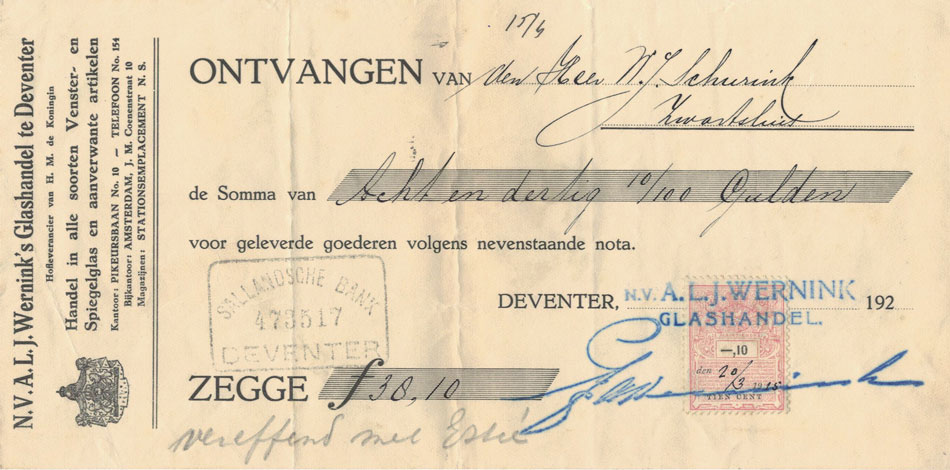 N.V. A.L.J. Wernink's Glashandel te Deventer
Hofleverancier van H. M. de Koningin
Handel in alle soorten Venster- en
Spiegelglas en aanverwante artikelen
Kantoor: PIKEURSBAAN No. 10 — TELEFOON No. 154
Bijkantoor: AMSTERDAM, J. M. Coenenstraat 10
Magazijnen: STATIONSEMPLACEMENT N. S.
15/6
ONTVANGEN VAN den Heer W.J. Schurink
Zwartsluis
de Somma van Acht en dertig 10/100 Gulden
voor geleverde goederen volgens nevenstaande nota.
SALLANDSCHE BANK
473517
DEVENTER
DEVENTER, N.V. A.L.J. WERNINK 192
GLASHANDEL.
—,10
den 20/3 1925
TIEN CENT
ZEGGE ƒ 38,10
vereffend met